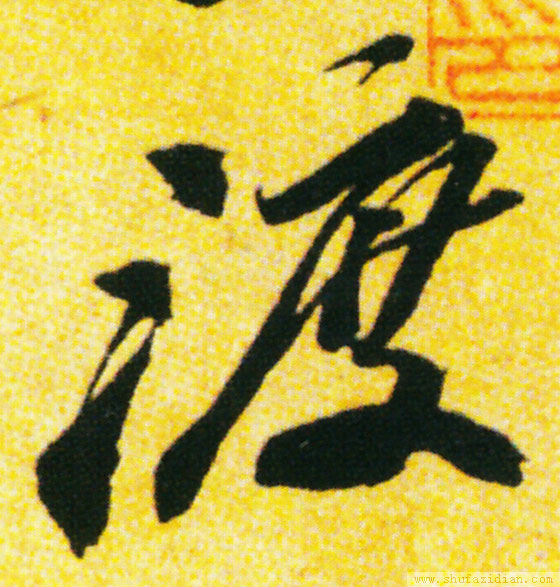 渡
www.shufazidian.com